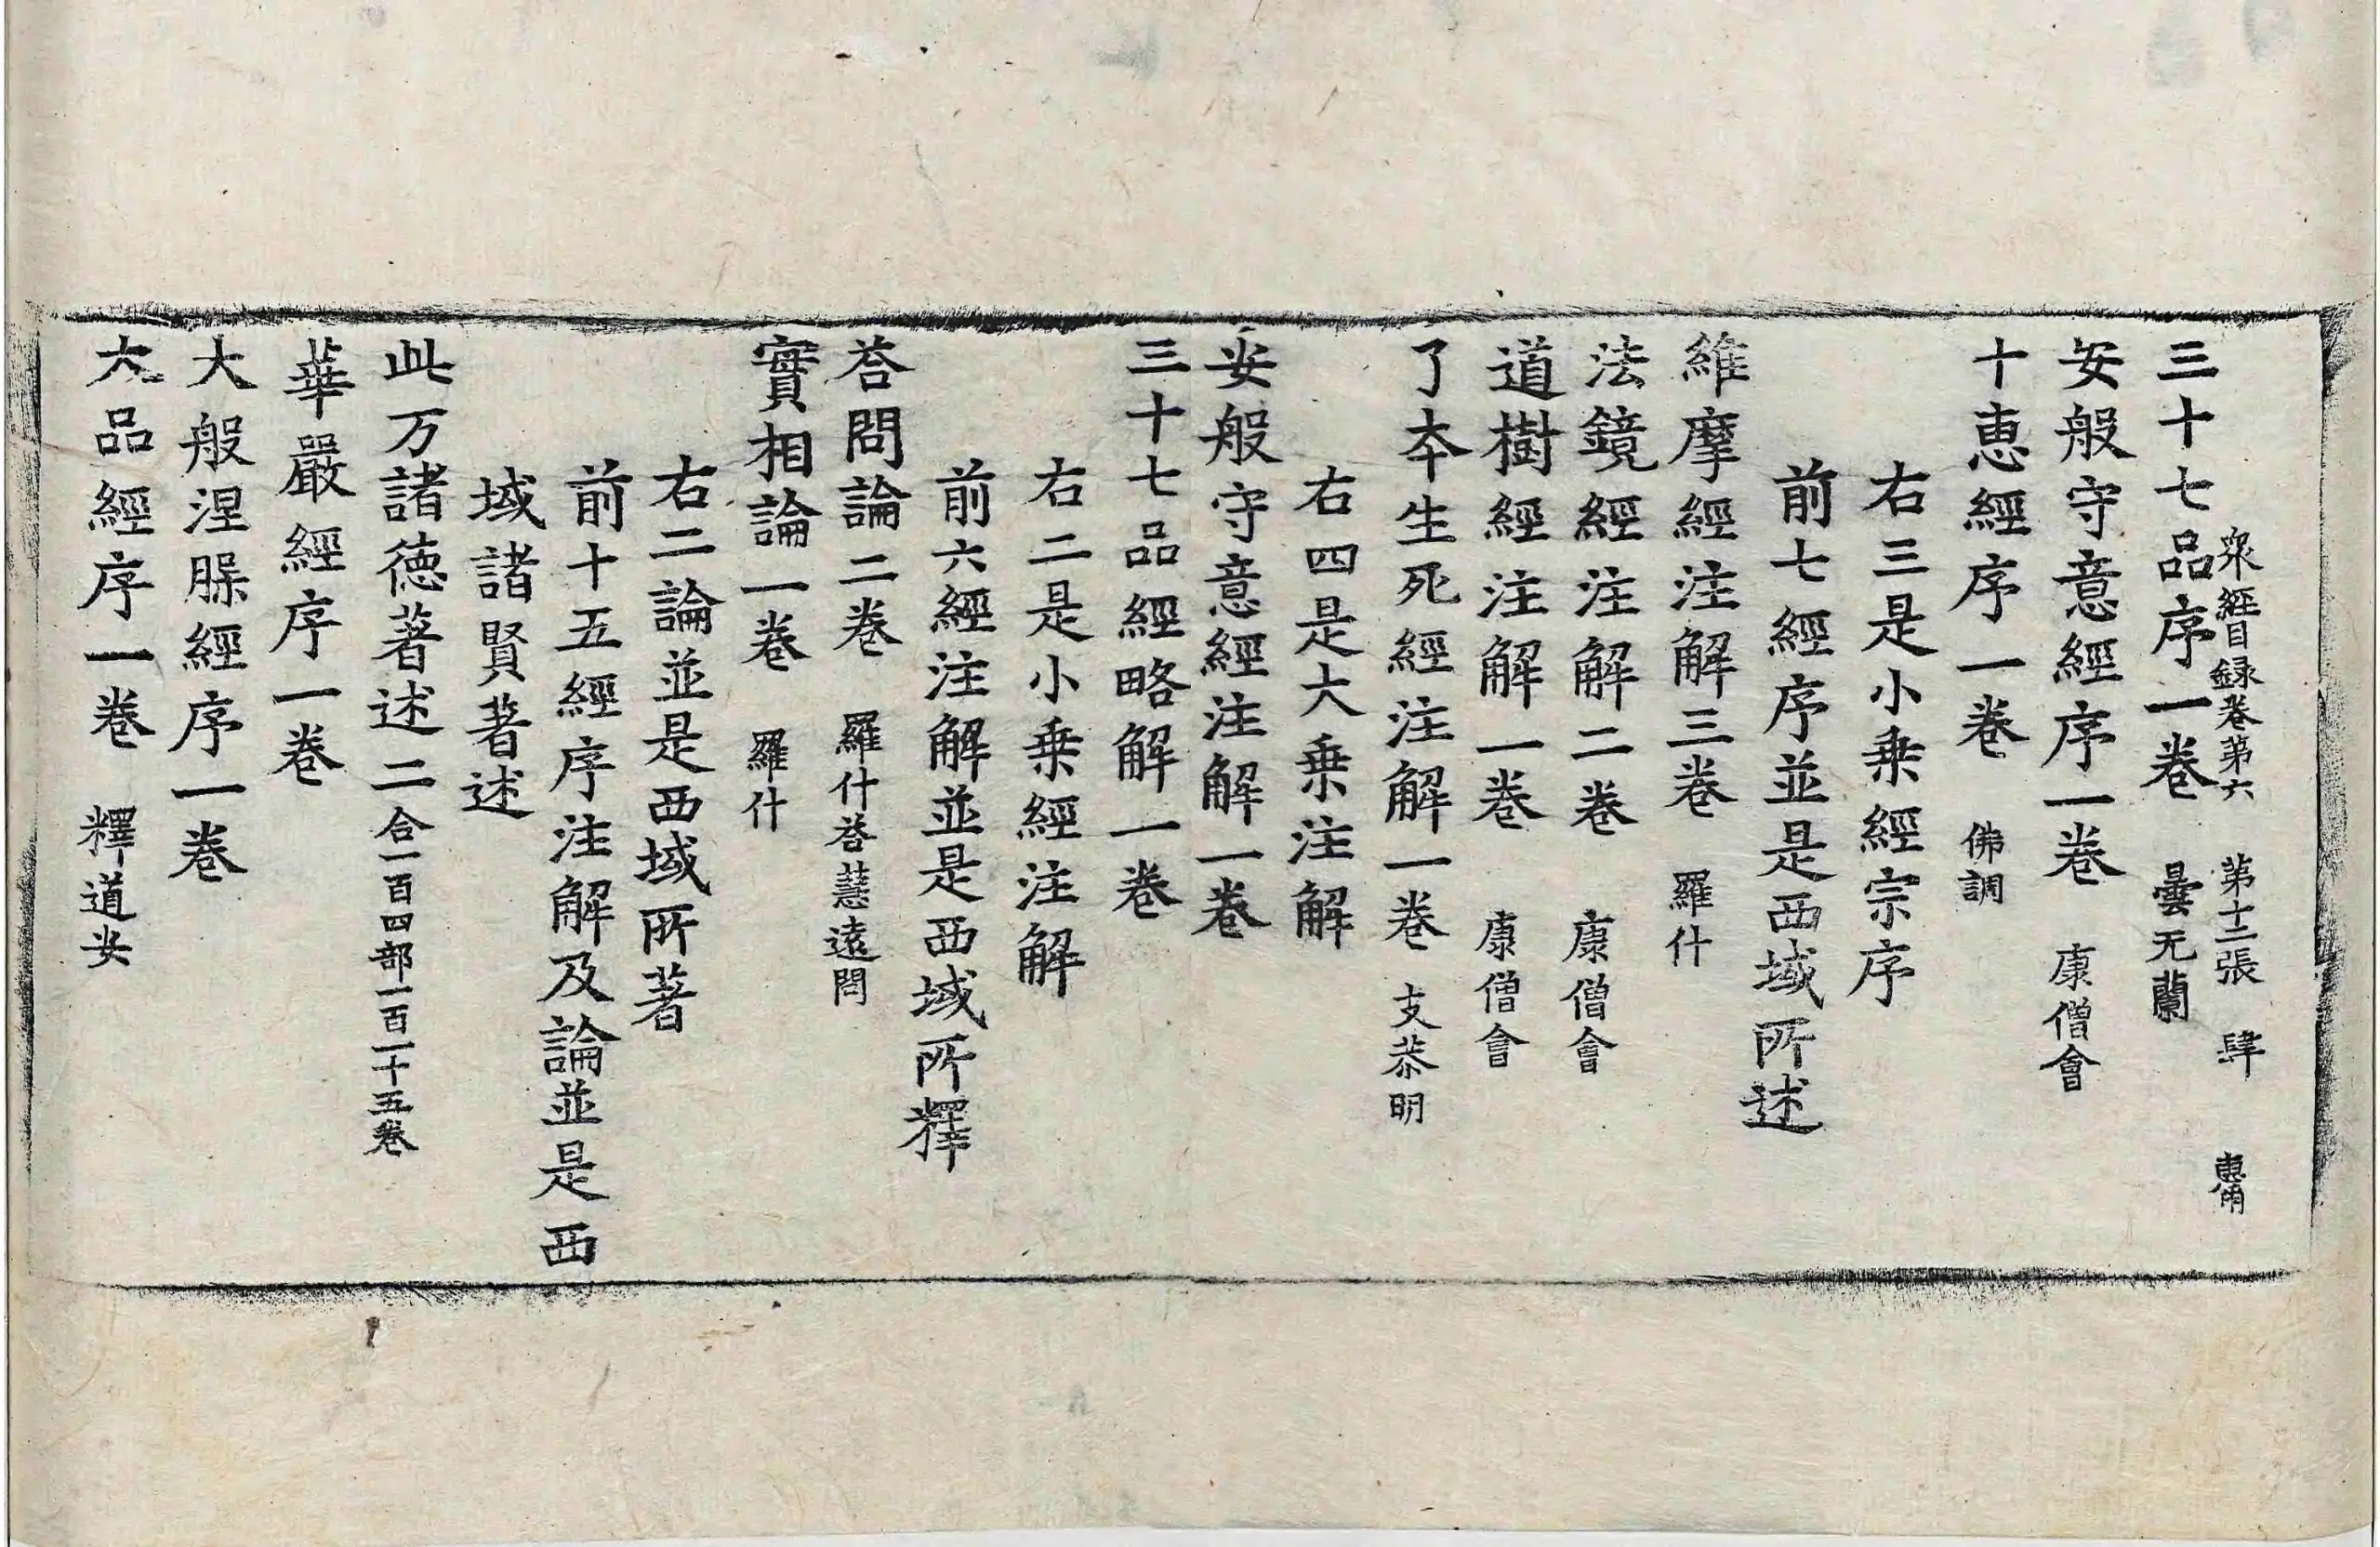 衆經目録卷第六　第十二張　肆
三十七品序一卷　曇无蘭
安般守意經序一卷　康僧會
十恵經序一卷　佛調
右三是小乗經宗序
前七經序並是西域所述
維摩經注解三卷　羅什
法鏡經注解二卷　康僧會
道樹經注解一卷　康僧會
了夲生死經注解一卷　支恭明
右四是大乗注解
安般守意經注解一卷
三十七品經略解一卷
右二是小乗經注解
前六經注解並是西域所釋
荅問論二卷　羅什荅慧遠問
實相論一卷　羅什
右二論並是西域所著
前十五經序注解及論並是西
域諸賢著述
此万諸徳著述二合一百四部一百一十五卷
華嚴經序一卷
大般涅槃經序一卷
大品經序一卷　釋道安